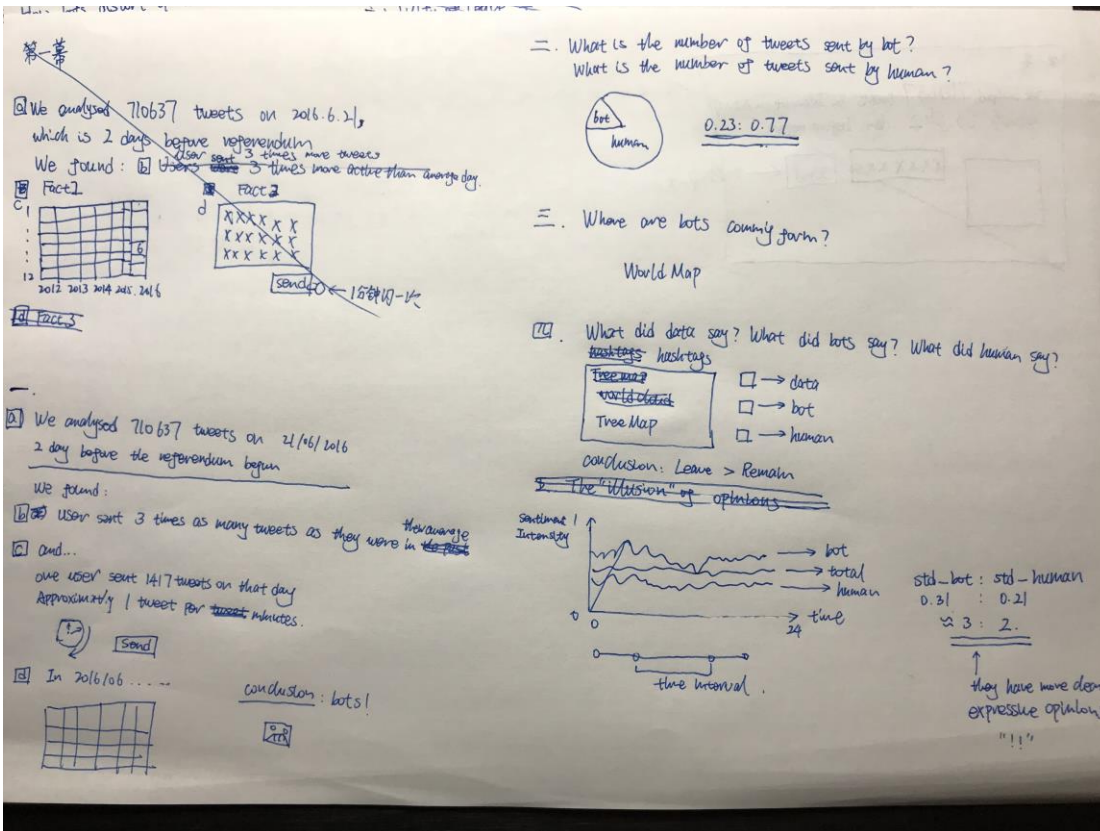 第一幕
a We analysed 710637 tweets on 2016.6.21,
which is 2 days before referendum
User sent 3 times more tweets
We found: b Users were 3 times more active than average day.
Fact1
Fact2
c
d
1
6
12
2012 2013 2014 2015 2016
XXXX X X
XXX X X X
XXX X X X
send
← 1分钟闪一次
d Fact3
一.
a We analysed 710637 tweets on 21/06/2016
2 day before the referendum begun
We found:
b user sent 3 times as many tweets as they were in the past
the average
c and...
one user sent 1417 tweets on that day
Approximatly 1 tweet per tweet minutes.
Send
d In 2016/06 ......
conclusion: bots!
二. What is the number of tweets sent by bot?
What is the number of tweets sent by human?
bot
human
0.23: 0.77
三. Where are bots commig form?
World Map
四. What did data say? What did bots say? What did human say?
hashtags hashtags
Treemap
world cloud
TreeMap
□ → data
□ → bot
□ → human
conclusion: Leave > Remain
The "illusion" of opinions
Sentiment
Intensity
1
→ bot
→ total
→ human
0
0
24
→ time
time interval.
std_bot : std_human
0.31 : 0.21
≈ 3 : 2.
↑
they have more
expressive opinion
"!!"